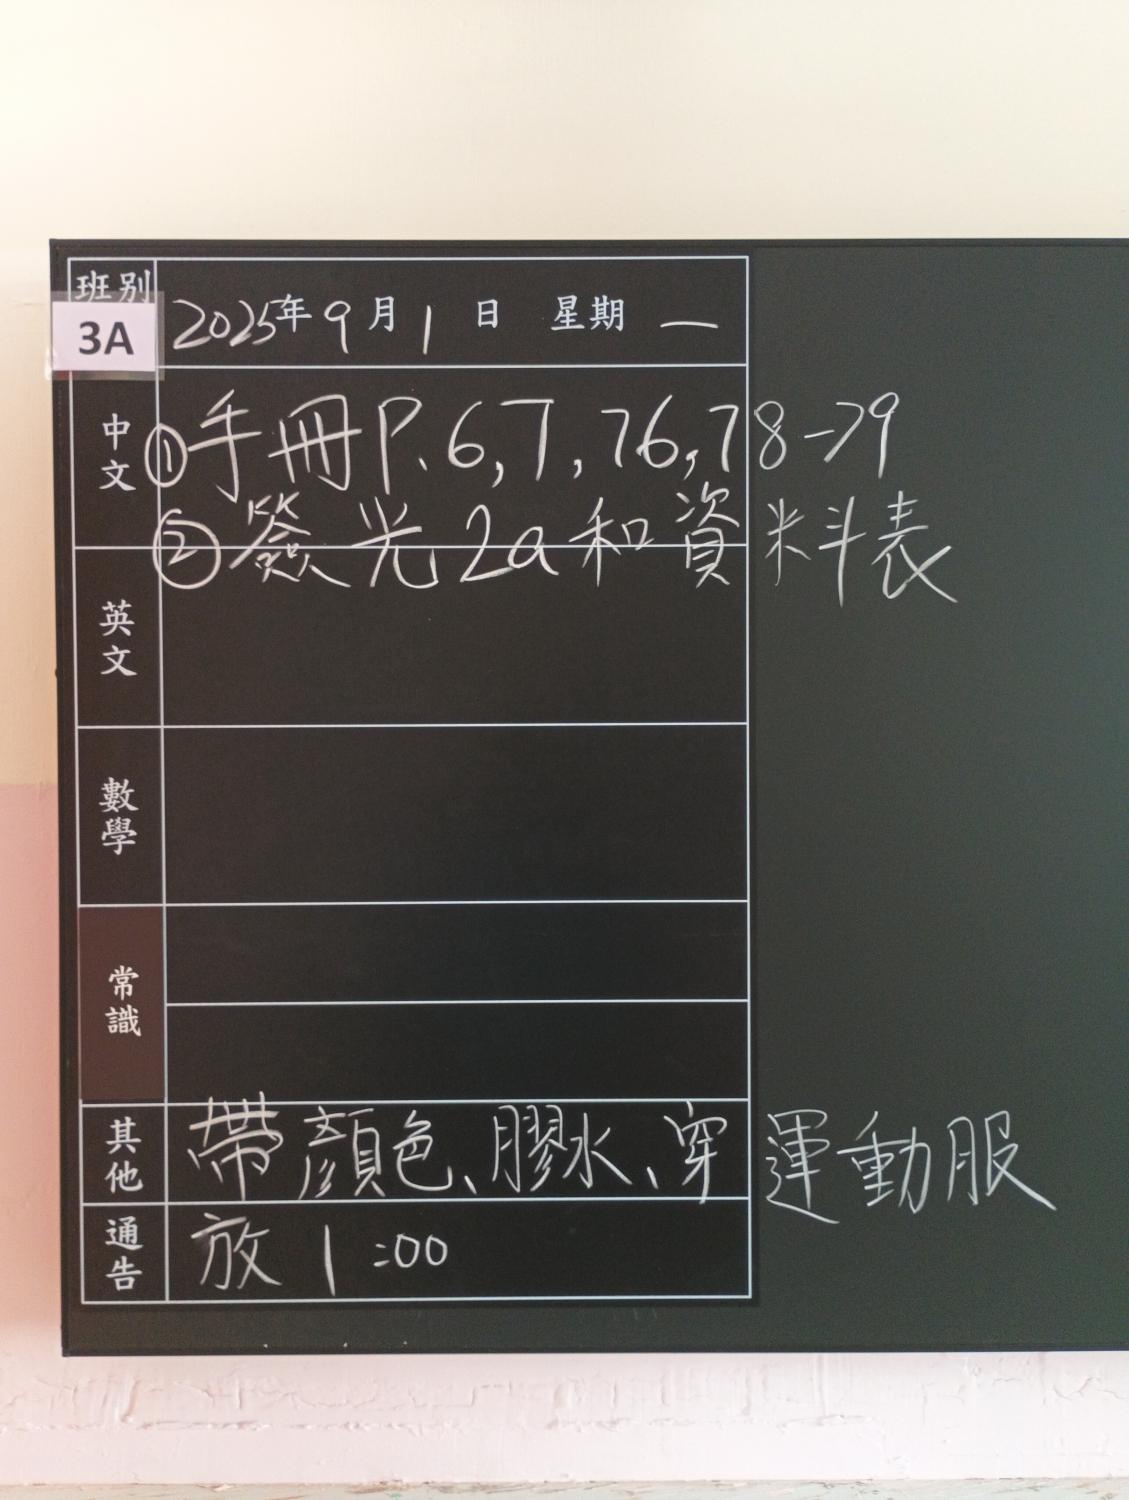 班別
3A
2025年9月1日 星期一
中文
①手冊P.6,7,76,78-79
②簽光2a和資料表
英文
數學
常識
其他
帶顏色、膠水、穿運動服
通告
放1:00